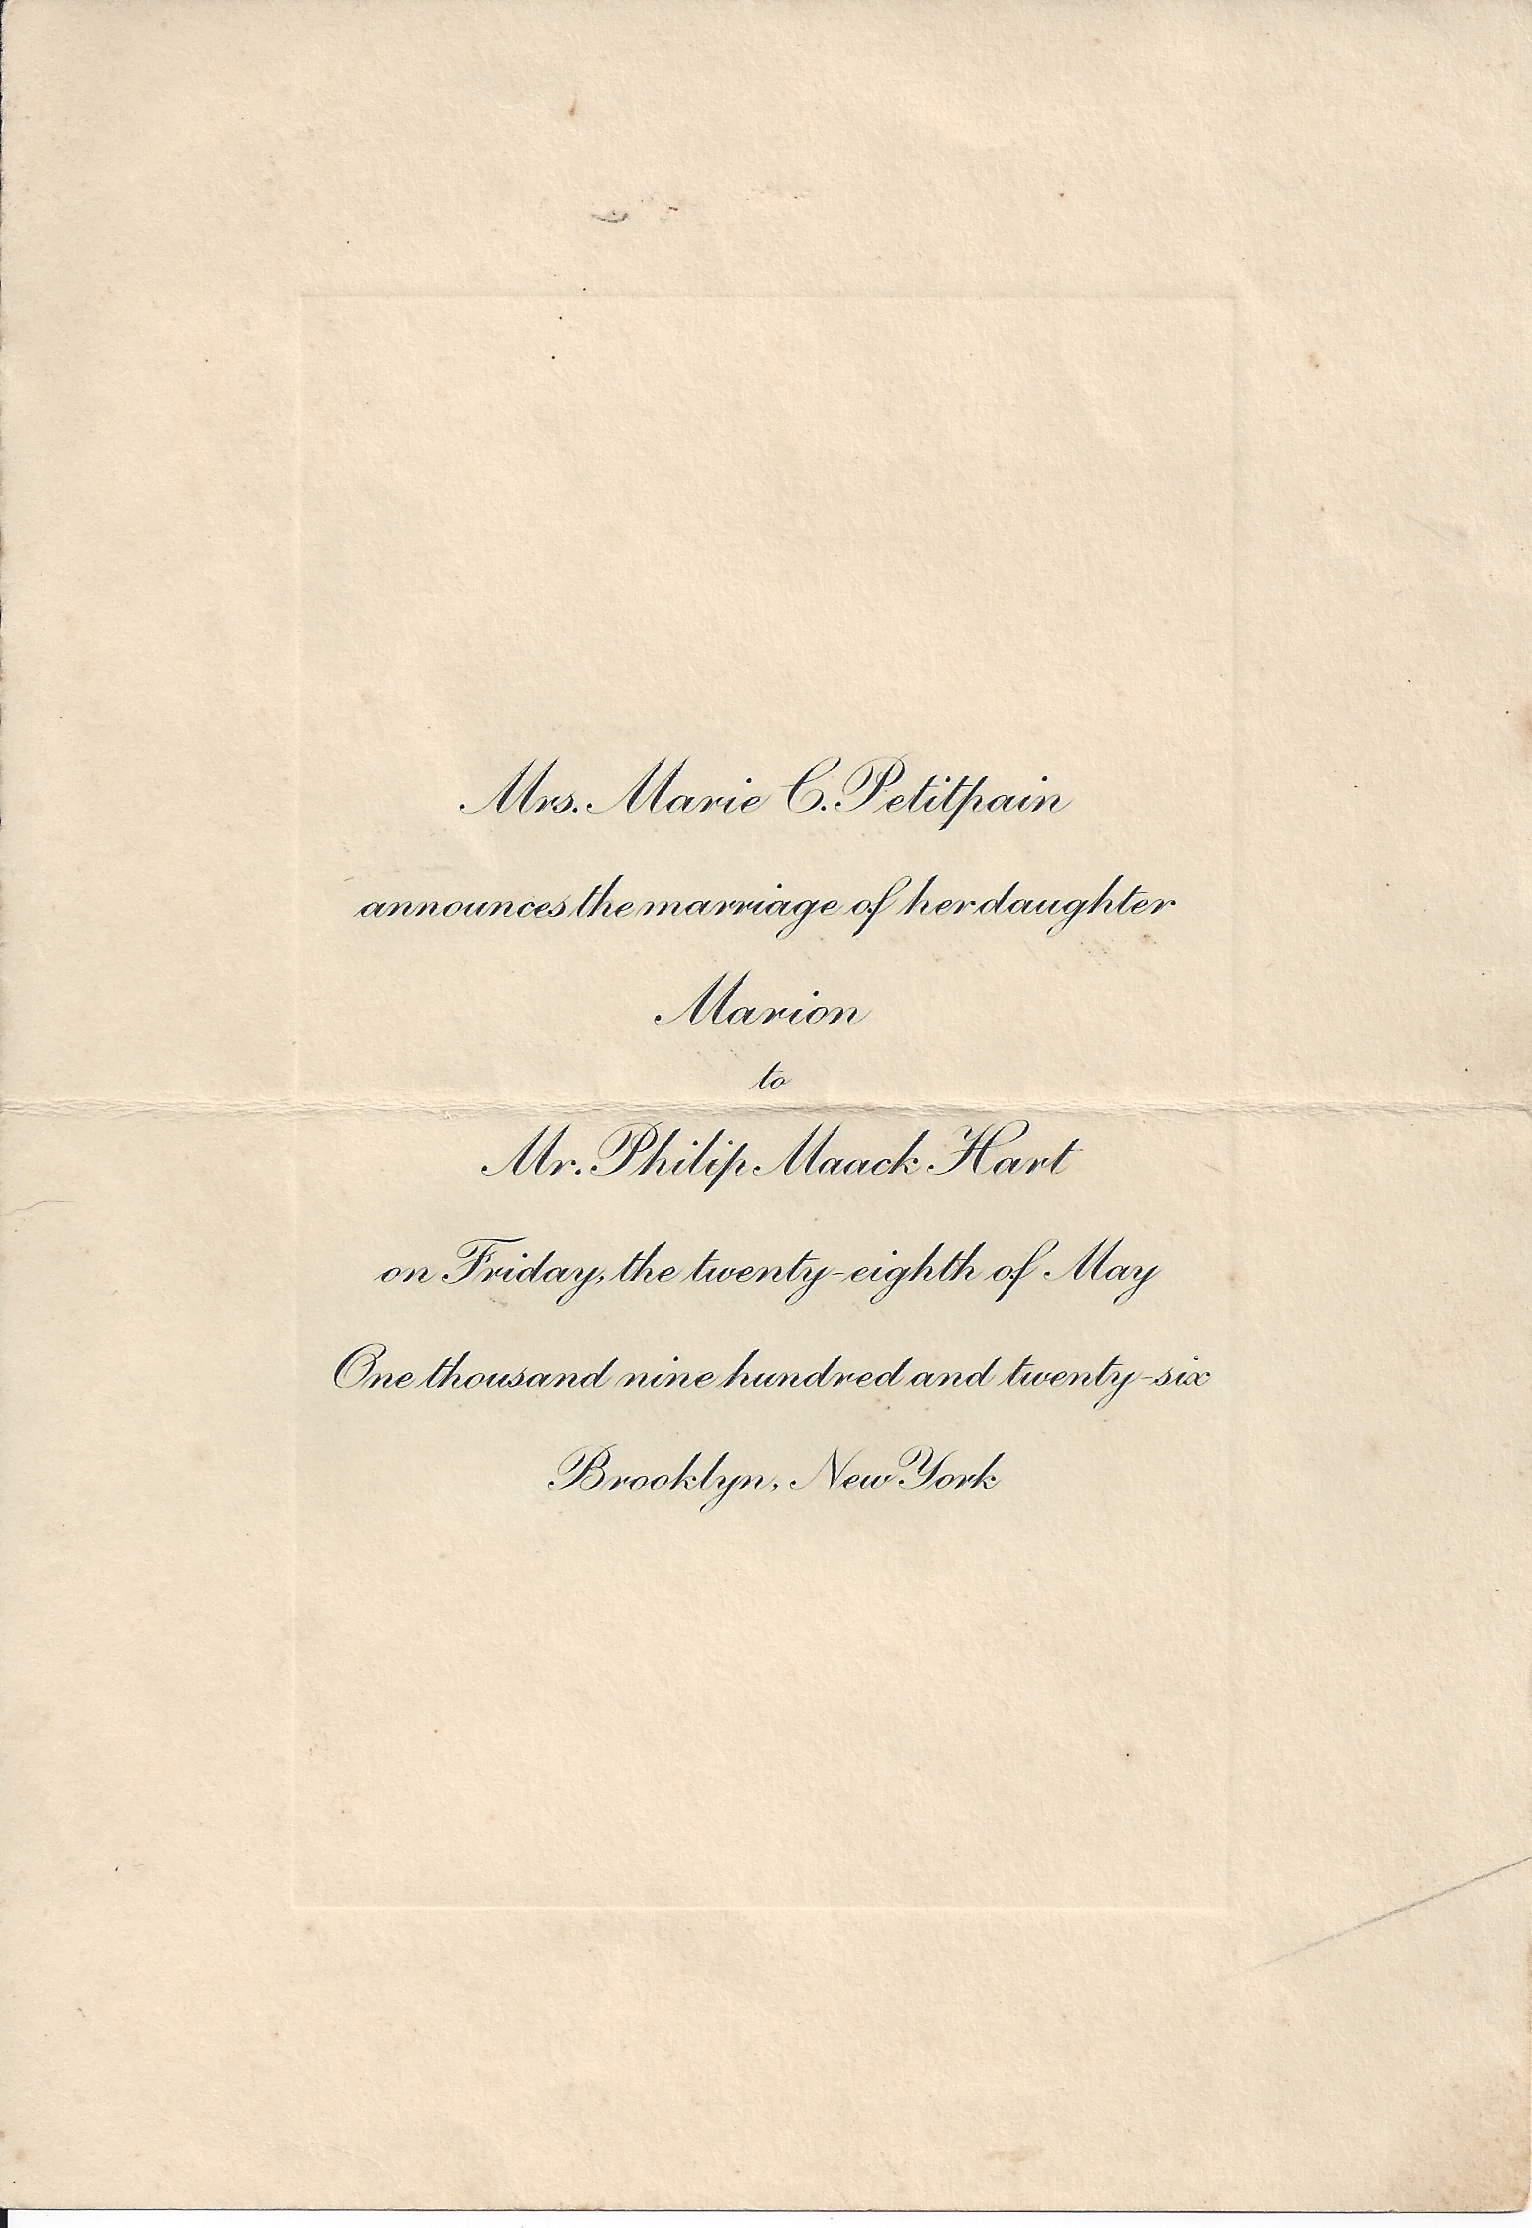 Mrs. Marie C. Petitpain
announces the marriage of her daughter
Marion
to
Mr. Philip Maack Hart
on Friday, the twenty-eighth of May
One thousand nine hundred and twenty-six
Brooklyn, New York